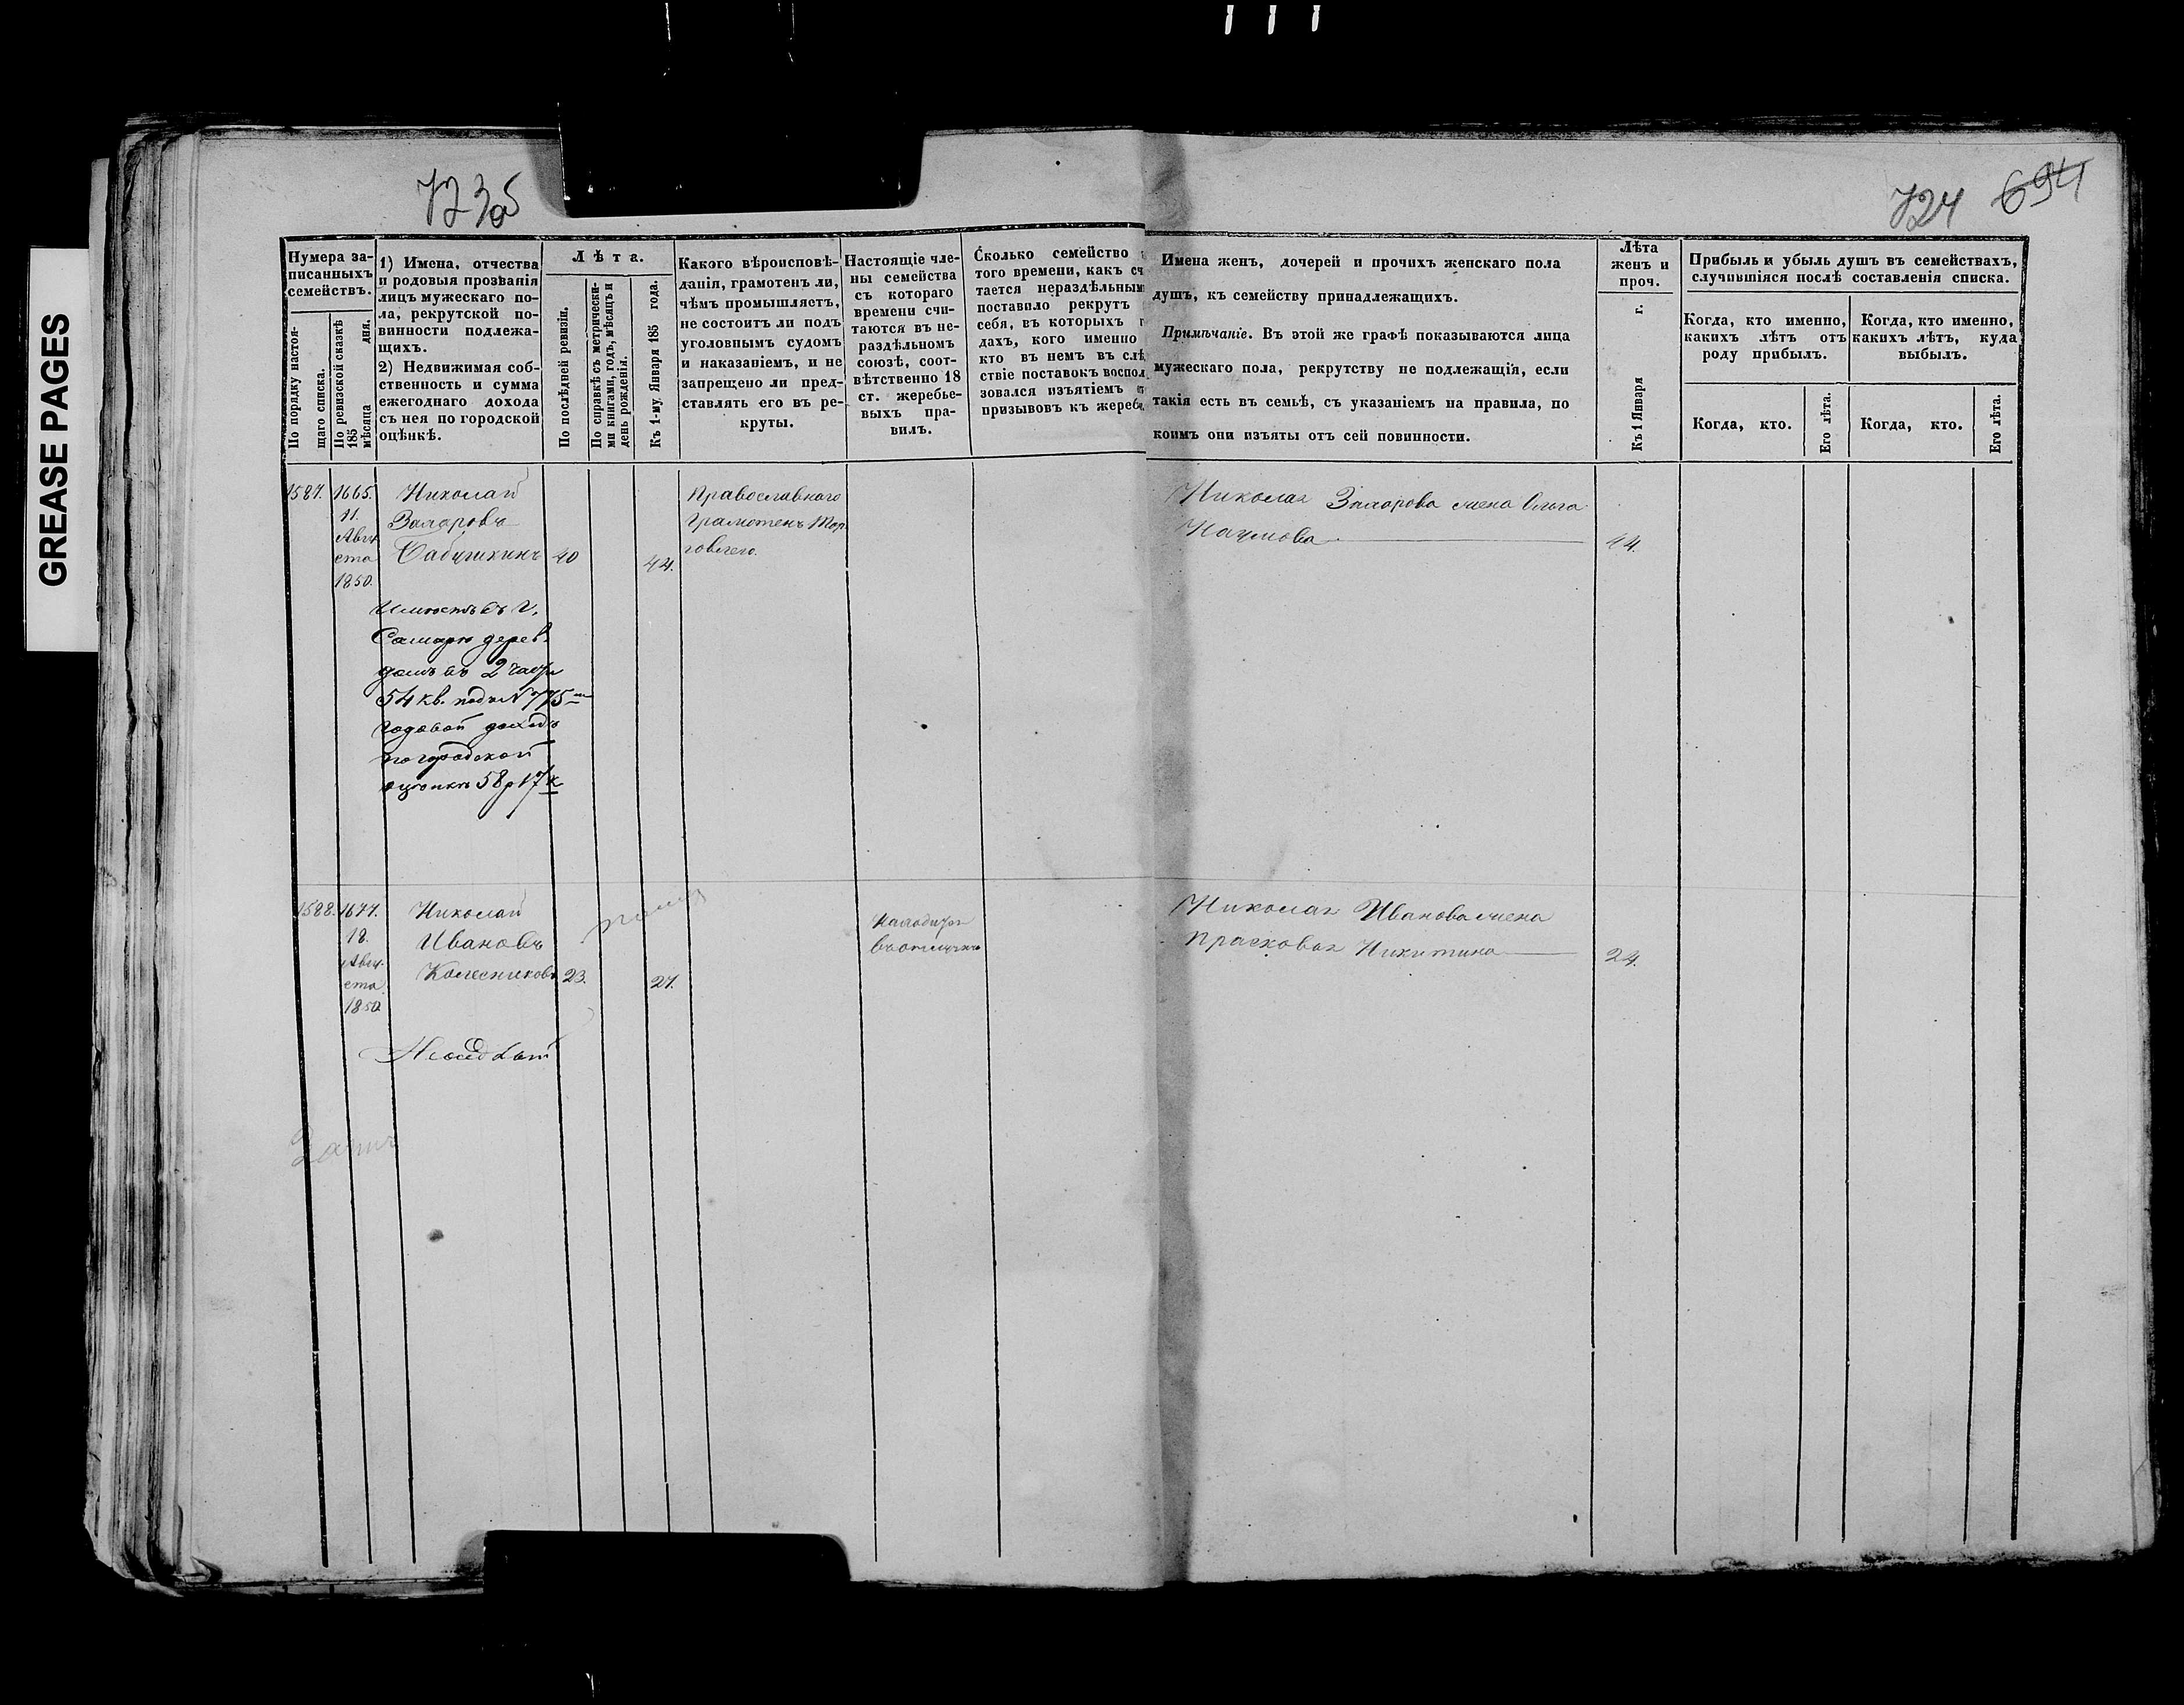 GREASE PAGES
723об
724 694
Нумера за-
писанныхъ
семействъ.
По порядку настоя-
щаго списка.
По ревизской сказкѣ
185 мѣсяца дня.
1) Имена, отчества
и родовыя прозванія
лицъ мужескаго по-
ла, рекрутской по-
винности подлежа-
щихъ.
2) Недвижимая соб-
ственность и сумма
ежегоднаго дохода
съ нея по городской
оцѣнкѣ.
Лѣта.
По послѣдней ревизіи.
По справкѣ съ метрически-
ми книгами, годъ, мѣсяцъ и
день рожденія.
Къ 1-му Января 185 года.
Какого вѣроисповѣ-
данія, грамотенъ ли,
чѣмъ промышляетъ,
не состоитъ ли подъ
уголовнымъ судомъ
и наказаніемъ, и не
запрещено ли пред-
ставлять его въ ре-
круты.
Настоящіе чле-
ны семейства
съ котораго
времени счи-
таются въ не-
раздѣльномъ
союзѣ, соот-
вѣтственно 18
ст. жеребье-
выхъ пра-
вилъ.
Сколько семейство
того времени, какъ сч
тается нераздѣльным
поставило рекрутъ
себя, въ которыхъ г
дахъ, кого именно
кто въ немъ въ слѣ
ствіе поставокъ воспол
зовался изъятіемъ
призывовъ къ жереб
Имена женъ, дочерей и прочихъ женскаго пола
душъ, къ семейству принадлежащихъ.
Примѣчаніе. Въ этой же графѣ показываются лица
мужескаго пола, рекрутству не подлежащія, если
такія есть въ семьѣ, съ указаніемъ на правила, по
коимъ они изъяты отъ сей повинности.
Лѣта
женъ и
проч.
Къ 1 Января г.
Прибыль и убыль душъ въ семействахъ,
случившіяся послѣ составленія списка.
Когда, кто именно,
какихъ лѣтъ отъ
роду прибылъ.
Когда, кто именно,
какихъ лѣтъ, куда
выбылъ.
Когда, кто.
Его лѣта.
Когда, кто.
Его лѣта.
1587.
1665.
11.
Авгу
ста
1850.
Николай
Захаровъ
Бабушкинъ 40 44.
Имѣетъ въ г.
Самарѣ дерев.
домъ въ 2 части
54 кв. подъ N 775
годовой доходъ
по городской
оцѣнкѣ 58 р 17 к
Православнаго
Грамотенъ Тор
говлею.
Николая Захарова жена Ольга
Наумова 44.
1588.
1677.
18.
Авгу-
ста
1850
Николай
Ивановъ
Колесниковъ 23. 27.
Находится
въ отлучкѣ
Николая Иванова жена
Прасковья Никитина 24.